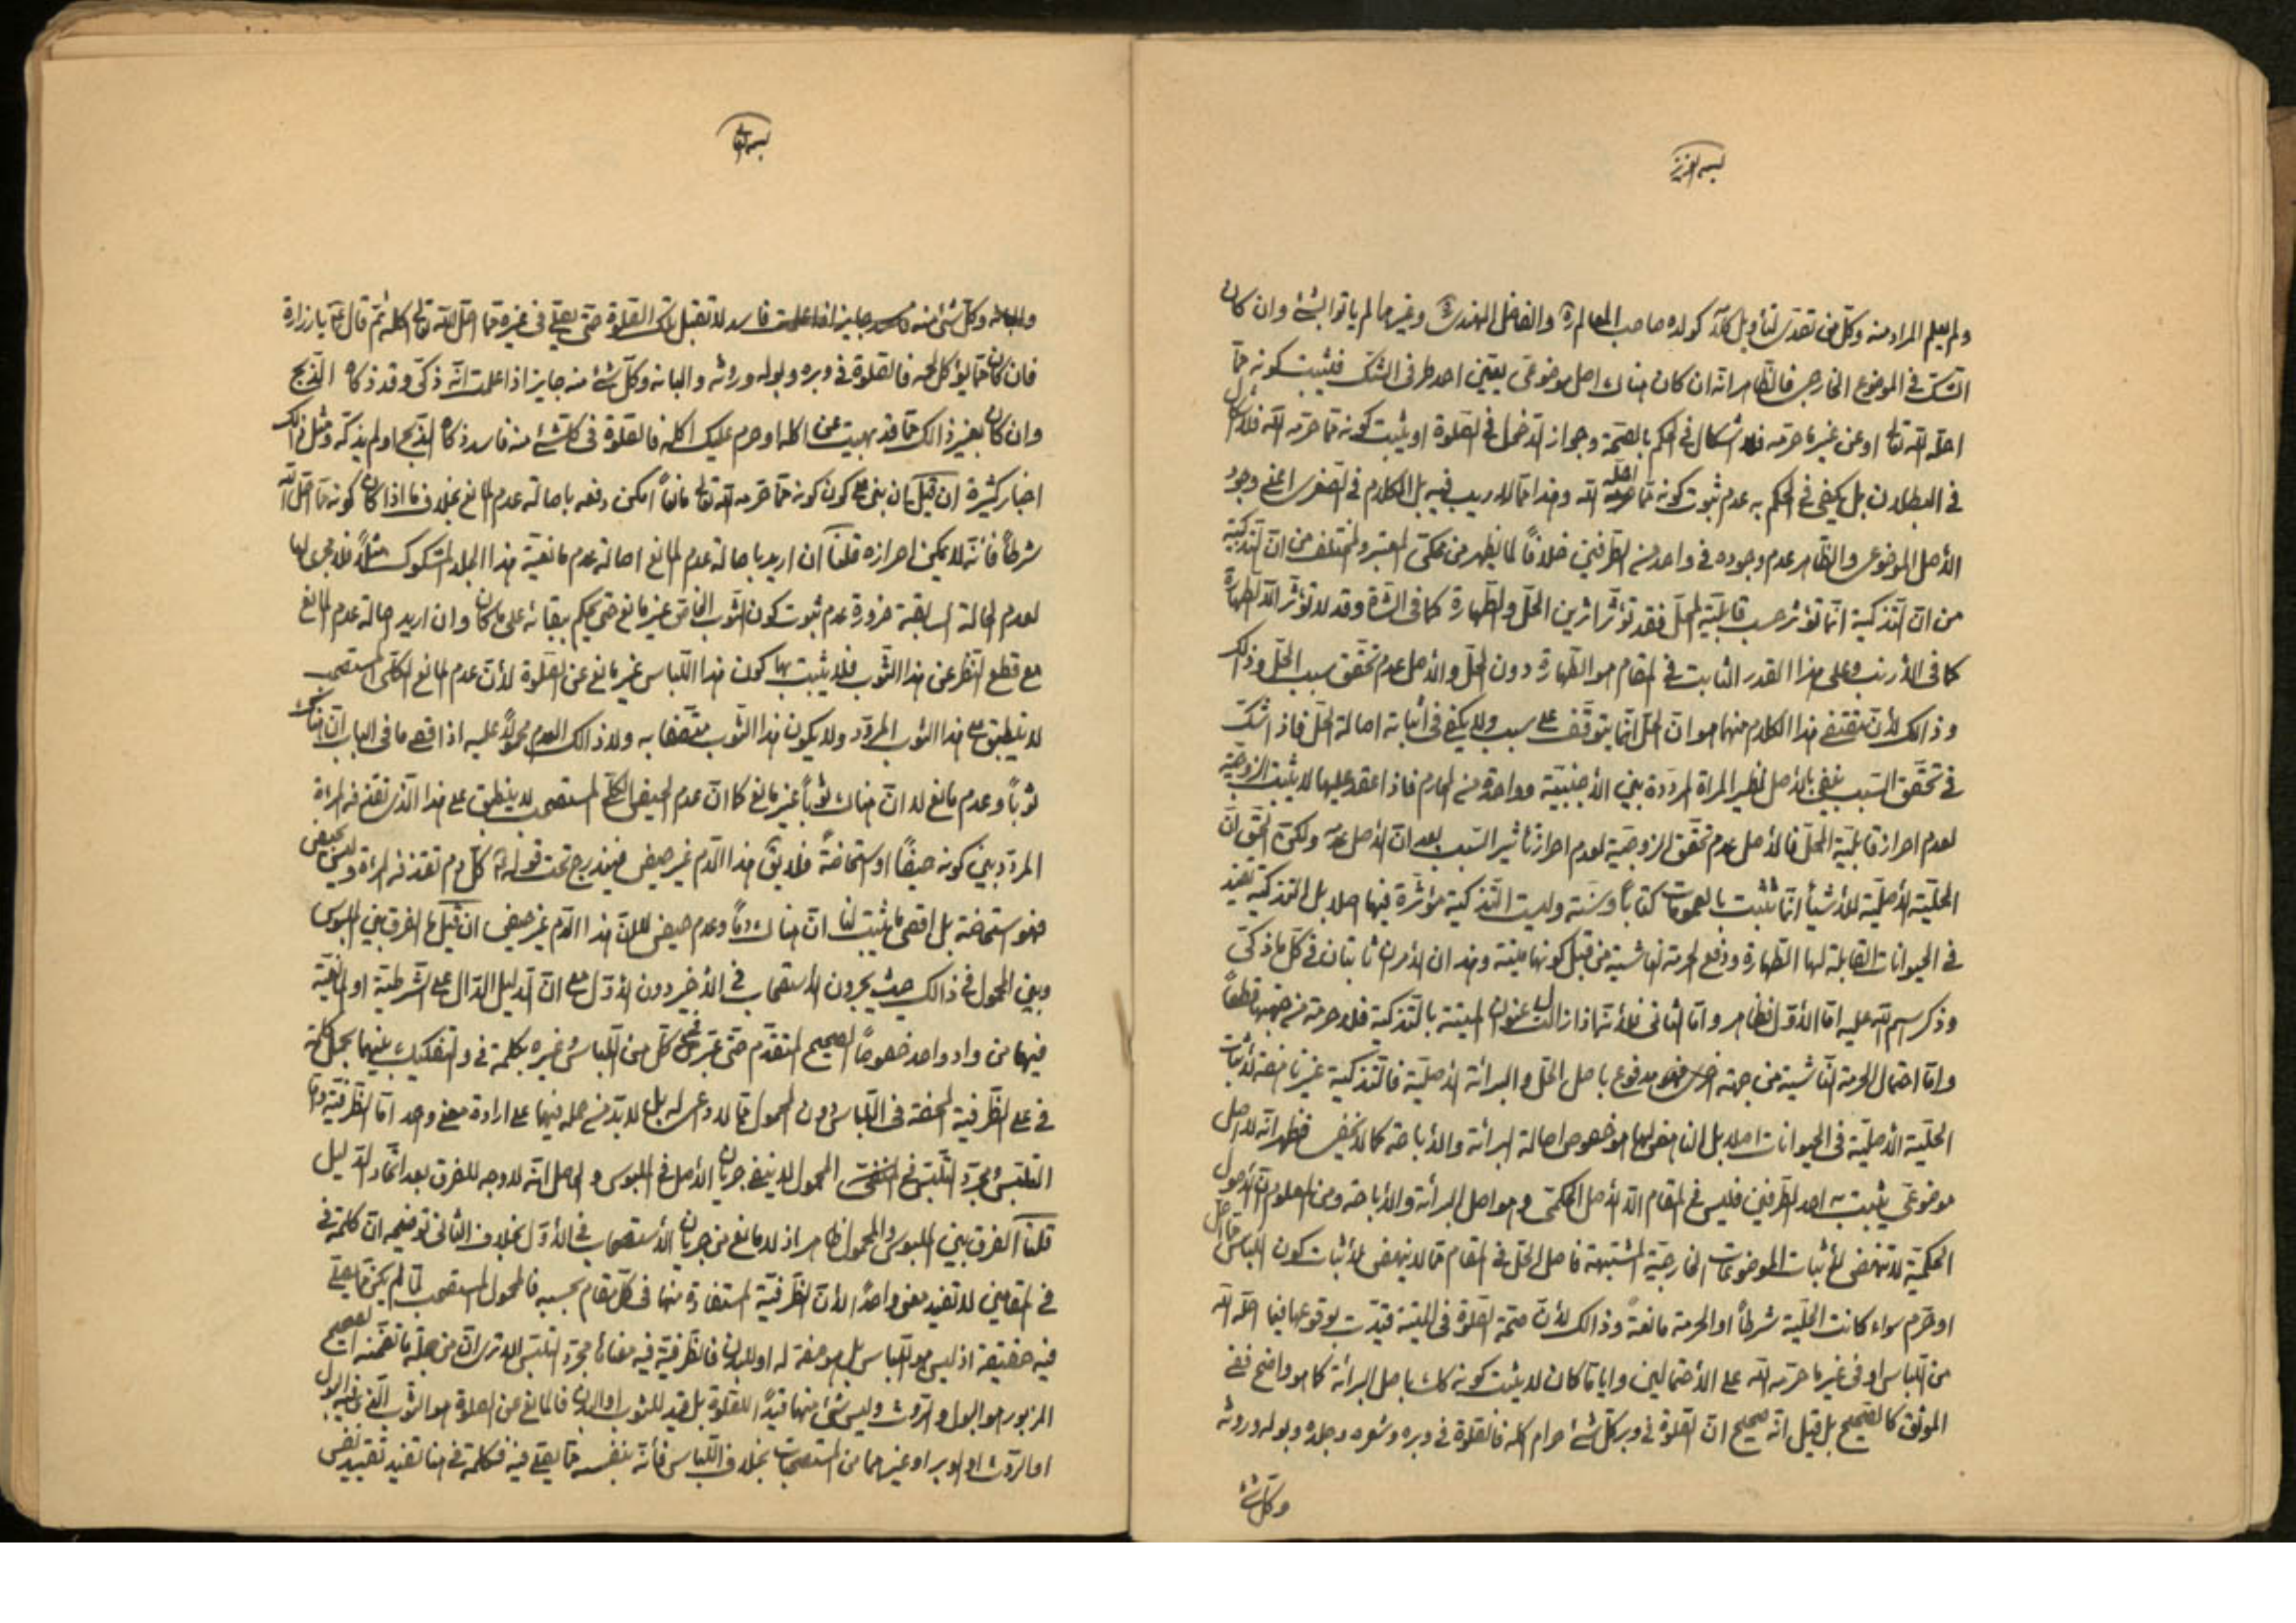 بسمه العزيز
ولم يعلم المراد منه وكل من تصدى لتأويل كلامه كولده صاحب المعالم ره والفاضل الهندي ره وغيرهما لم يأتوا بشئ وان كان
الشك في الموضوع الخارجى فالظاهر انه ان كان هناك اصل موضوعى يعين احد طرفى الشك فيثبت كونه مما
احله الله تعالى او عن غير ما حرمه فلا اشكال في الحكم بالصحة وجواز الدخول في الصلوة او يثبت كونه مما حرمه الله فلا اشكال
في البطلان بل يكفى في الحكم به عدم ثبوت كونه مما احله الله وهذا مما لا ريب فيه بل الكلام في الصغرى اعنى وجود
الأصل الموضوعى والظاهر عدم وجوده في واحد من الطرفين خلافاً لما يظهر من محكى المعتبر والمختلف من ان التذكية
من ان التذكية انما تؤثر حسب قابلية المحل فقد تؤثر اثرين الحل والطهارة كما في الشاة وقد لا تؤثر الا الطهارة
كما في الأرنب وعلى هذا القدر الثابت في المقام هو الطهارة دون الحل والأصل عدم تحقق سبب الحل وذلك
وذالك لأن مقتضى هذا الكلام منهما هو ان الحل انما يتوقف على سبب ولا يكفى في اثباته اصالة الحل فاذا شك
في تحقق السبب ينفى بالأصل نظير المراة المرددة بين الأجنبية وواحدة من المحارم فاذا عقد عليها لا يثبت الزوجية
لعدم احراز قابلية المحل فالأصل عدم تحقق الزوجية لعدم احراز تأثير السبب بعد ان الأصل عدمه ولكن الحق ان
الحلية الأصلية للأشياء انما تثبت بالعمومات كتاباً وسنة وليست التذكية مؤثرة فيها اصلا بل التذكية تفيد
في الحيوانات القابلة لها الطهارة ورفع الحرمة الناشية من قبل كونها ميتة وهذان الأمران ثابتان في كل ما ذكى
وذكر اسم الله عليه اما الأول فظاهر واما الثانى فلأنه اذا زال عنوان الميتة بالتذكية فلا حرمة من جهتها قطعاً
واما احتمال الحرمة الناشية من جهة اخرى فهو مدفوع باصل الحل والبرائة الأصلية فالتذكية غير نافعة لأثبات
الحلية الأصلية في الحيوانات اصلا بل النافع لها هو خصوص اصالة البرائة والأباحة كما لا يخفى فظهر انه لا اصل
موضوعى يثبت به احد الطرفين فليس في المقام الا الأصل الحكمى وهو اصل البرائة والأباحة ومن المعلوم ان الأصول
الحكمية لا تنهض لأثبات الموضوعات الخارجية المشتبهة فاصل الحل في المقام مما لا ينهض لأثبات كون اللباس مما احل
او حرم سواء كانت الحلية شرطاً او الحرمة مانعة وذالك لأن صحة الصلوة في الميتة قيدت بوقوعها فيما احله الله
من اللباس او في غير ما حرمه الله على الأحتمالين وايا ما كان لا يثبت كونه كك باصل البرائة كما هو واضح ففى
الموثق كالصحيح بل قيل انه صحيح ان الصلوة في وبر كل شئ حرام اكله فالصلوة في وبره وشعره وجلده وبوله وروثه
وكل شئ
بسمه تعالى
والبانه وكل شئ منه فاسد لا تقبل تلك الصلوة حتى يصلى في غيره مما احل الله تعالى اكله ثم قال ع يا زرارة
فان كان مما يؤكل لحمه فالصلوة في وبره وبوله وروثه والبانه وكل شئ منه جايز اذا علمت انه ذكى وقد ذكاه الذبح
وان كان بغير ذالك مما قد نهيت عن اكله او حرم عليك اكله فالصلوة في كل شئ منه فاسد ذكاه الذبح او لم يذكه ومثل ذلك
اخبار كثيرة ان قيل ان بنى على كون كونه مما حرمه الله تعالى مانعاً امكن دفعه باصالة عدم المانع بخلاف ما اذا كان كونه مما احل الله
شرطاً فانه لا يمكن احرازه قلنا ان اريد باصالة عدم المانع اصالة عدم مانعية هذا الجلد المشكوك مثلاً فلا مجرى لها
لعدم الحالة السابقة ضرورة عدم ثبوت كون الثوب الخاص غير مانع حتى يحكم ببقائه على ما كان وان اريد اصالة عدم المانع
مع قطع النظر عن هذا الثوب فلا يثبت بها كون هذا اللباس غير مانع عن الصلوة لأن عدم المانع الكلى المستصحب
لا ينطبق على هذا الثوب المردد ولا يكون هذا الثوب متصفا به ولا ذالك العدم محمولاً عليه اذ اقصى ما في الباب ان هناك
ثوباً وعدم مانع لا ان هناك ثوباً غير مانع كما ان عدم الحيض الكلى المستصحب لا ينطبق على هذا الدم الذى تقذفه المراة
المردد بين كونه حيضاً او استحاضة فلا يق هذا الدم غير حيض فيندرج تحت قوله ع كل دم تقذفه المراة وليس بحيض
فهو استحاضة بل اقصى ما يثبت لنا ان هناك دماً وعدم حيض لا ان هذا الدم غير حيض ان قيل ما الفرق بين الملبوس
وبين المحمول في ذالك حيث يجرون الأستصحاب في الأخير دون الأول مع ان الدليل الدال على الشرطية او المانعية
فيهما من واد واحد خصوصاً الصحيح المتقدم حتى عبر في كل من اللباس وغيره بكلمة في والتفكيك بينهما بحمل كلمة
في على الظرفية المحضة في اللباس دون المحمول مما لا داعى له بل لا بد من حمله فيهما على ارادة معنى واحد اما الظرفية واما
التلبس ومجرد التلبس في المحمول لا ينفى جريان الأصل في الملبوس والحاصل انه لا وجه للفرق بعد اتحاد الدليل
قلنا الفرق بين الملبوس والمحمول ظاهر اذ لا مانع من جريان الأستصحاب في الأول بخلاف الثانى توضيحه ان كلمة في
في المقامين لا تفيد معنى واحداً لأن الظرفية المستفادة منها في كل مقام بحسبه فالمحمول المستصحب لما لم يكن مما يصلى
فيه حقيقة اذ ليس هو اللباس بل هو صفة له او للبدن فالظرفية فيه معناها مجرد التلبس الا ترى ان من جملة ما تضمنه الصحيح
المزبور هو البول والروث وليس شئ منهما قيداً للصلوة بل قيد للثوب او البدن فالمانع عن الصلوة هو الثوب الذى فيه البول
او الروث او الوبر او غيرهما من المستصحبات بخلاف اللباس فأنه بنفسه مما يصلى فيه فكلمة في هنا تفيد تقييد نفس